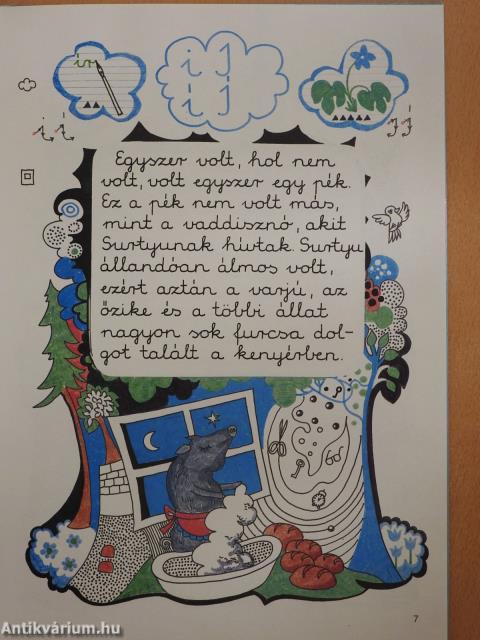 ír
i í
i í
i í
í í
Egyszer volt, hol nem
volt, volt egyszer egy pék.
Ez a pék nem volt más,
mint a vaddisznó, akit
Surtyunak hívtak. Surtyu
állandóan álmos volt,
ezért aztán a varjú, az
őzike és a többi állat
nagyon sok furcsa dol-
got talált a kenyérben.
7
Antikvárium.hu